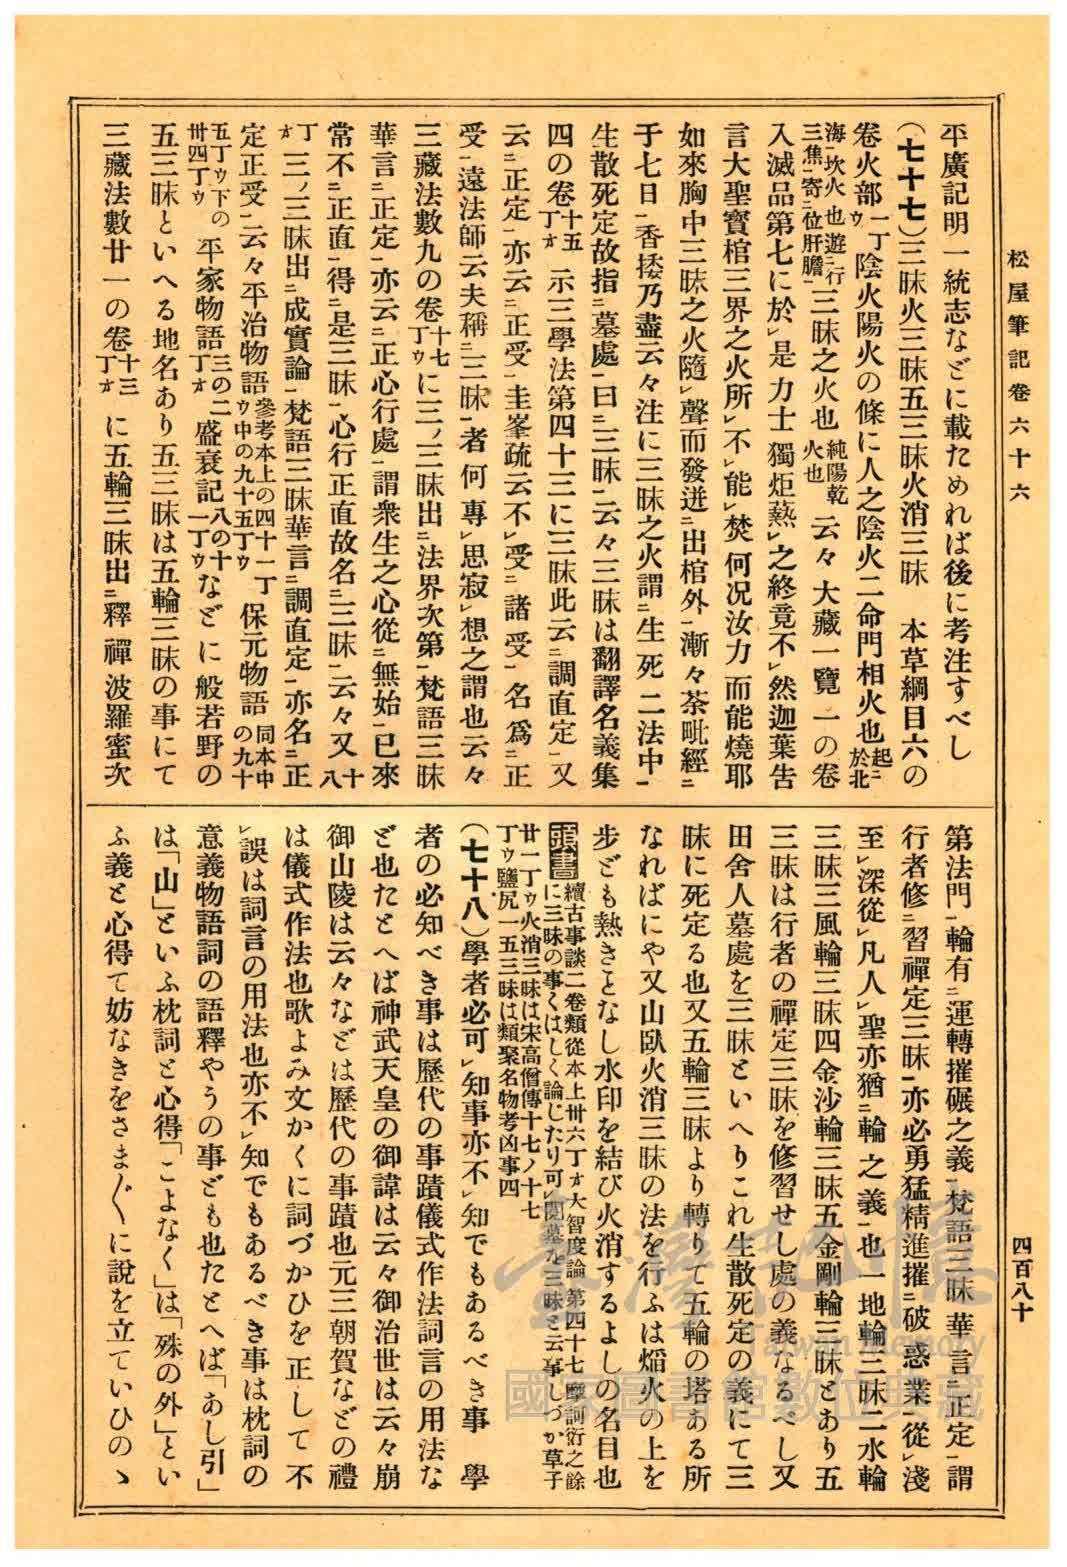 松屋筆記卷六十六
四百八十
平廣記明一統志などに載ためれば後に考注すべし
(七十七)三昧火三昧五三昧火消三昧　本草綱目六の
卷火部一丁ウ陰火陽火の條に人之陰火二命門相火也起ニ於北
海一坎火也遊ニ行三焦一寄ニ位肝膽一三昧之火也純陽乾火也云々大藏一覽一の卷
入滅品第七に於レ是力士獨炬爇レ之終竟不レ然迦葉吿
言大聖寶棺三界之火所レ不レ能レ焚何况汝力而能燒耶
如來胸中三昧之火隨レ聲而發迸ニ出棺外一漸々茶毗經ニ
于七日一香㨾乃盡云々注に三昧之火謂ニ生死二法中一
生散死定故指ニ墓處一曰ニ三昧一云々三昧は翻譯名義集
四の卷十五丁オ示三學法第四十三に三昧此云ニ調直定一又
云ニ正定一亦云ニ正受一圭峯疏云不レ受ニ諸受一名爲ニ正
受一遠法師云夫稱ニ三昧一者何專レ思寂レ想之謂也云々
三藏法數九の卷十七丁ウに三ノ三昧出ニ法界次第一梵語三昧
華言ニ正定一亦云ニ正心行處一謂衆生之心從ニ無始一已來
常不ニ正直一得ニ是三昧一心行正直故名ニ三昧一云々又十八
丁オ三ノ三昧出ニ成實論一梵語三昧華言ニ調直定一亦名ニ正
定正受一云々平治物語參考本上の四十一丁ウ中の九十五丁ウ保元物語同本中の九十
五丁ウ下の卅四丁ウ平家物語三の二丁オ盛衰記八の十一丁ウなどに般若野の
五三昧といへる地名あり五三昧は五輪三昧の事にて
三藏法數廿一の卷十三丁オに五輪三昧出ニ釋禪波羅蜜次
第法門一輪有ニ運轉摧碾之義一梵語三昧華言ニ正定一謂
行者修ニ習禪定三昧一亦必勇猛精進摧ニ破惑業一從レ淺
至レ深從レ凡人レ聖亦猶ニ輪之義一也一地輪三昧二水輪
三昧三風輪三昧四金沙輪三昧五金剛輪三昧とあり五
三昧は行者の禪定三昧を修習せし處の義なるべし又
田舍人墓處を三昧といへりこれ生散死定の義にて三
昧に死定る也又五輪三昧より轉りて五輪の塔ある所
なればにや又山臥火消三昧の法を行ふは焰火の上を
步ども熱きとなし水印を結び火消するよしの名目也
頭書 續古事談二卷類從本上卅六丁オ大智度論第四十七摩訶衍之餘
に三昧の事くはしく論じたり可レ閱墓を三昧と云事しづか草子
廿一丁ウ火消三昧は宋高僧傳十七ノ十七
丁ウ鹽尻一五三昧は類聚名物考凶事四
(七十八)學者必可レ知事亦不レ知でもあるべき事　學
者の必知べき事は歷代の事蹟儀式作法詞言の用法な
ど也たとへば神武天皇の御諱は云々御治世は云々崩
御山陵は云々などは歷代の事蹟也元三朝賀などの禮
は儀式作法也歌よみ文かくに詞づかひを正して不
レ誤は詞言の用法也亦不レ知でもあるべき事は枕詞の
意義物語詞の語釋やうの事ども也たとへば「あし引」
は「山」といふ枕詞と心得「こよなく」は「殊の外」とい
ふ義と心得て妨なきをさま〴〵に說を立ていひのゝ
臺灣記憶
Taiwan Memory
國家圖書館數位典藏